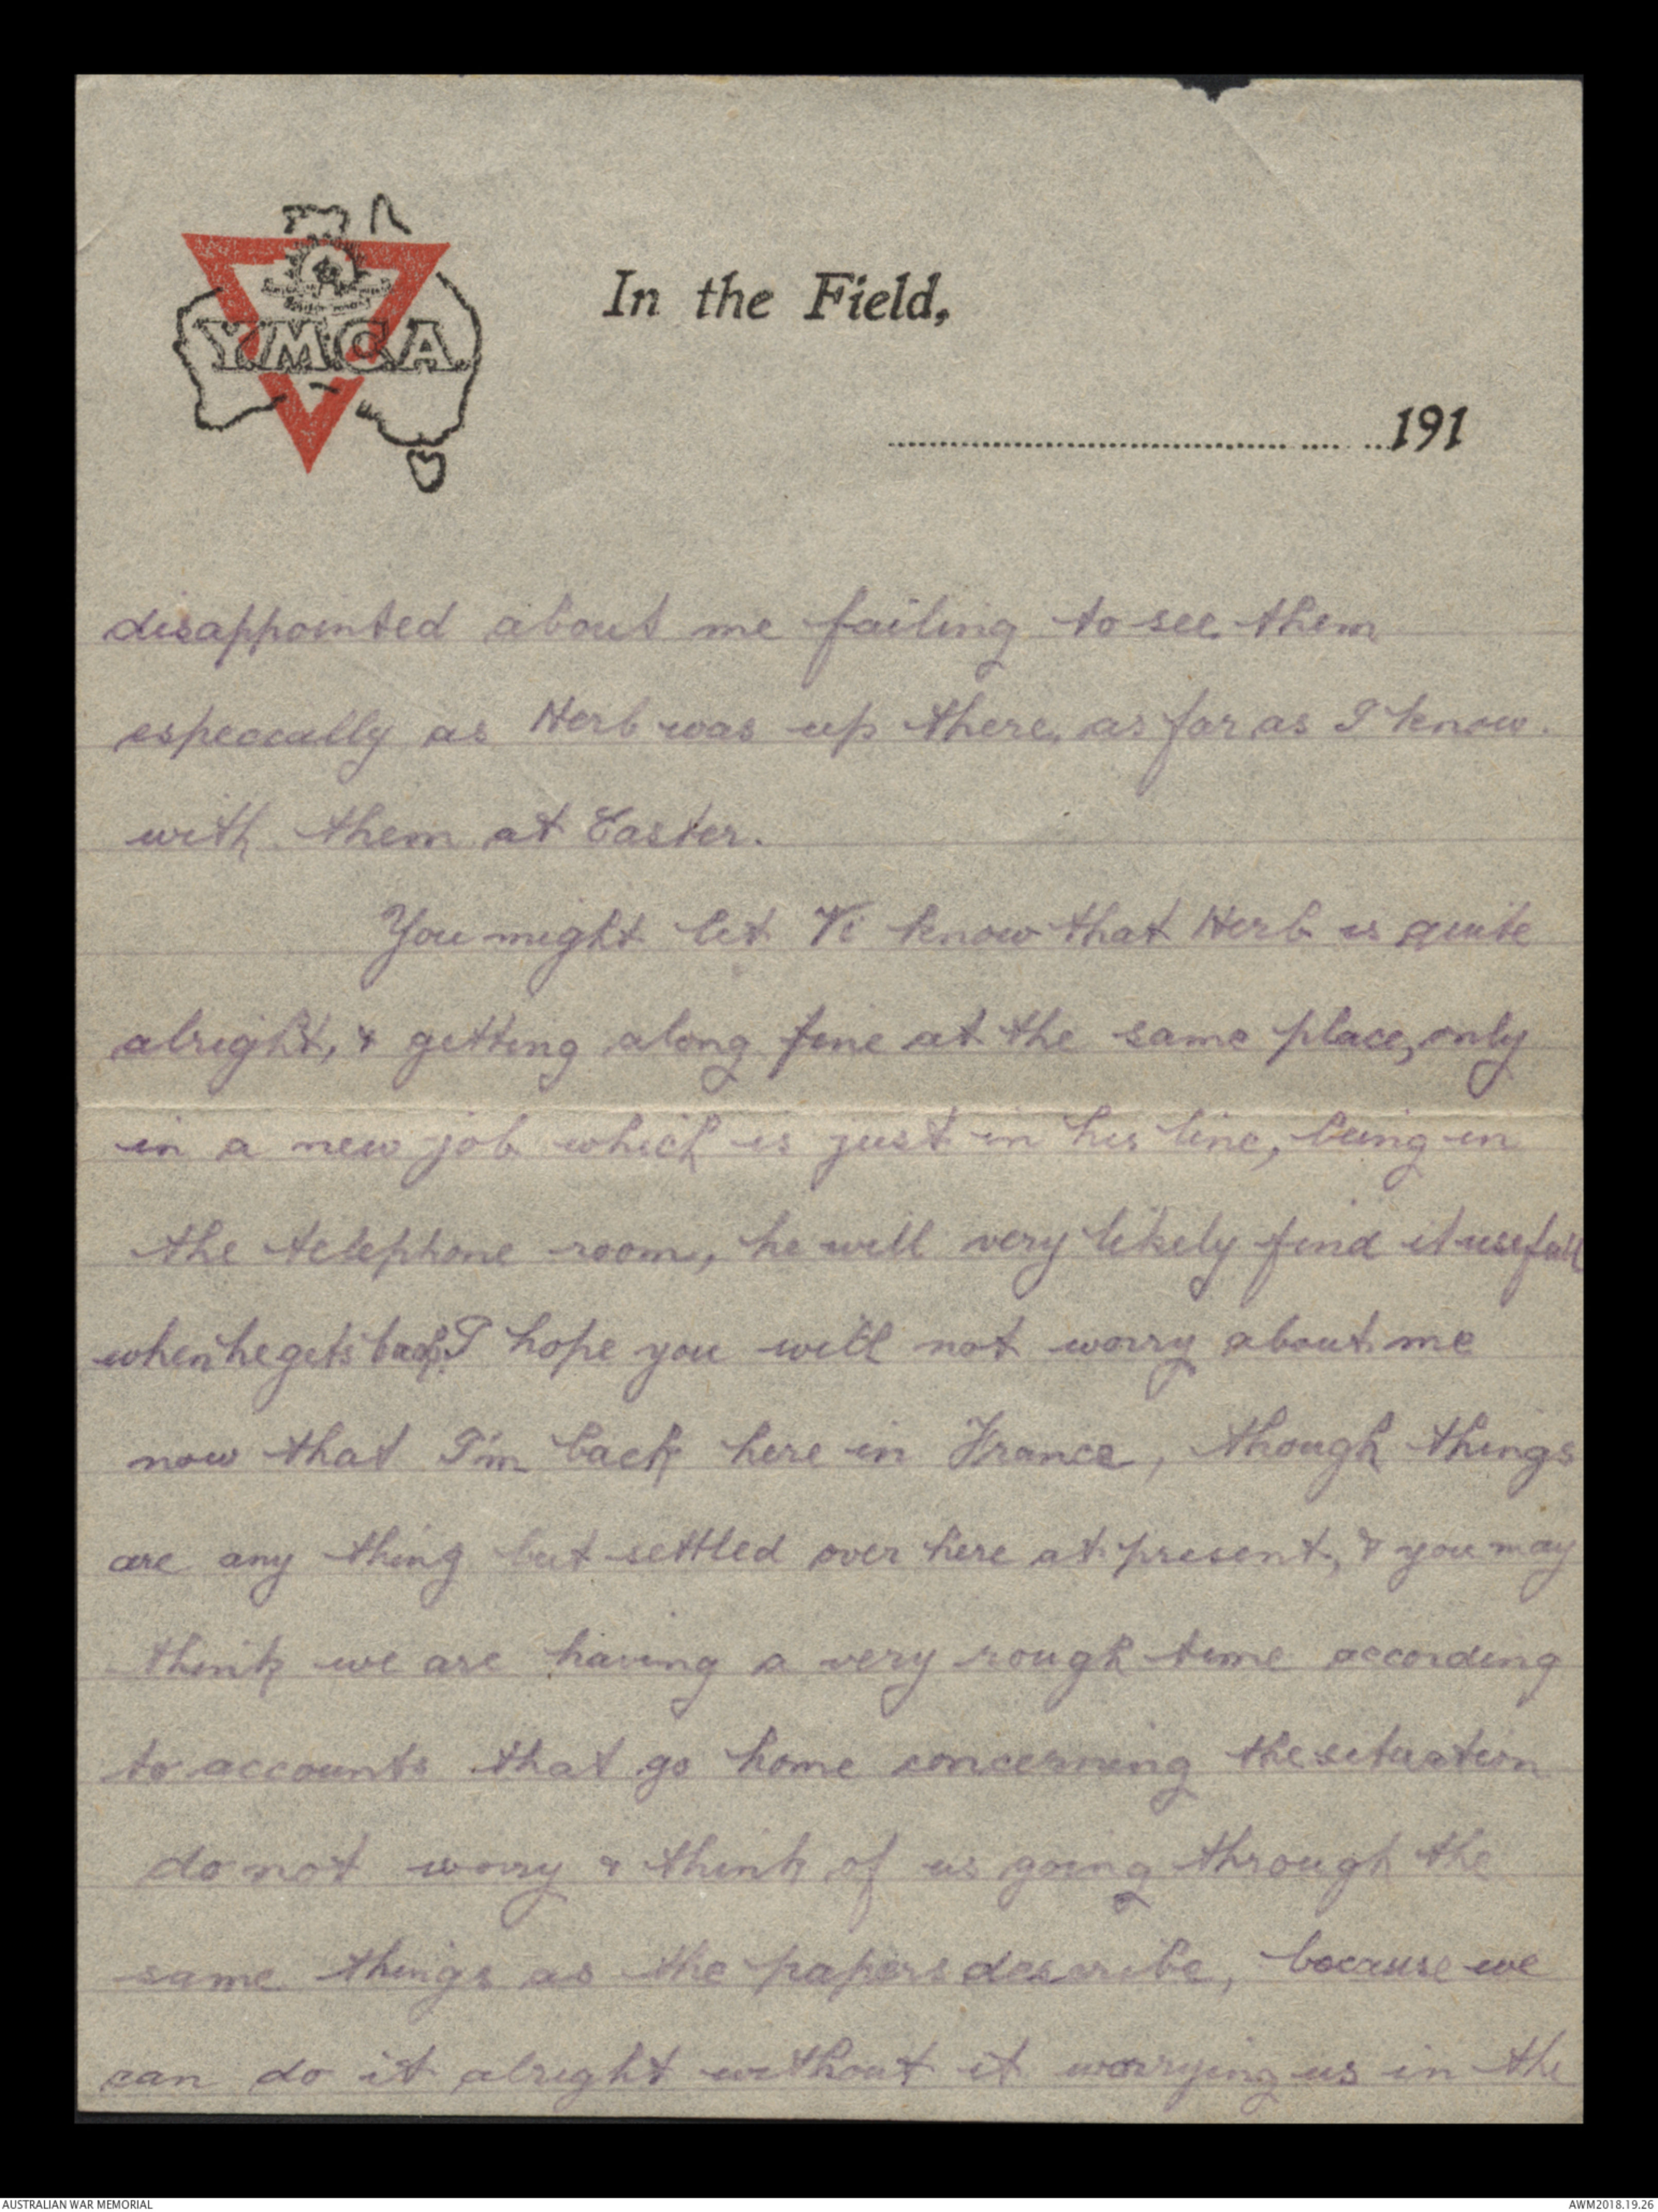 Y.M.C.A.
In the Field,
191
disappointed about me failing to see them
especially as Herb was up there, as far as I know.
with them at Easter.
You might let Vi know that Herb is quite
alright, & getting along fine at the same place, only
in a new job which is just in his line, being in
the telephone room, he will very likely find it usefull
when he gets back. I hope you will not worry about me
now that I'm back here in France, though things
are any thing but settled over here at present, & you may
think we are having a very rough time according
to accounts that go home concerning the situation
do not worry & think of us going through the
same things as the papers describe, because we
can do it alright without it worrying us in the
AUSTRALIAN WAR MEMORIAL
AWM2018.19.26